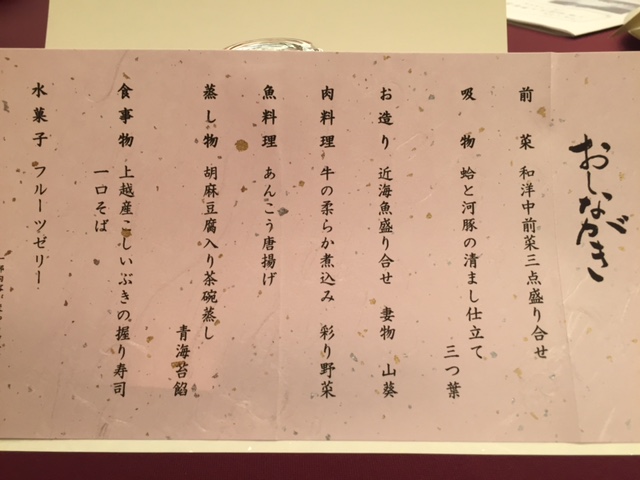 おしながき
前菜 和洋中前菜三点盛り合せ
吸物 蛤と河豚の清まし仕立て
三つ葉
お造り 近海魚盛り合せ 妻物 山葵
肉料理 牛の柔らか煮込み 彩り野菜
魚料理 あんこう唐揚げ
蒸し物 胡麻豆腐入り茶碗蒸し
青海苔餡
食事物 上越産こしいぶきの握り寿司
一口そば
水菓子 フルーツゼリー